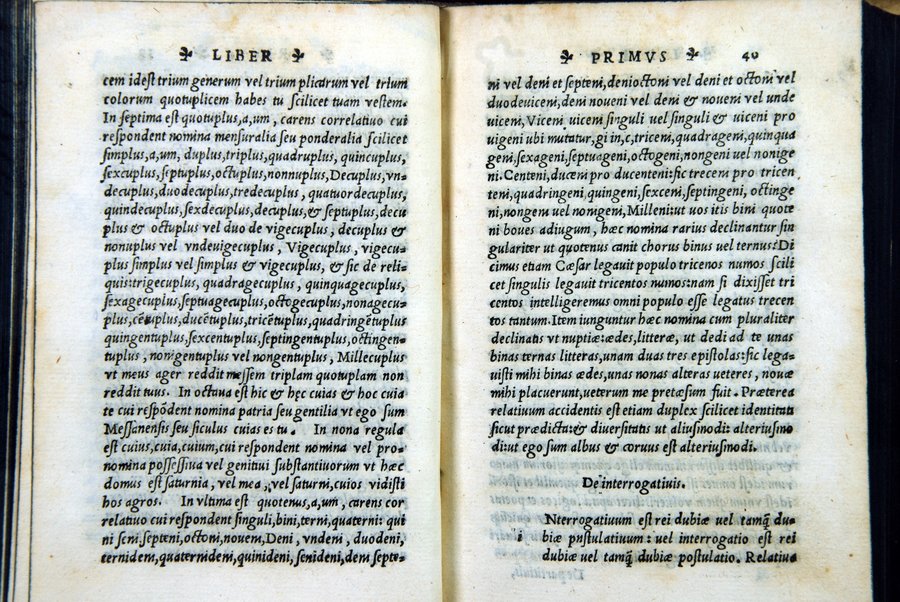 LIBER
cem idest trium generum vel trium plicarum vel trium
colorum quotuplicem habes tu scilicet tuam vestem.
In septima est quotuplus,a,um, carens correlatiuo cui
respondent nomina mensuralia seu ponderalia scilicet
simplus,a,um, duplus,triplus,quadruplus, quincuplus,
sexcuplus,septuplus,octuplus,nonnuplus,Decuplus,vn-
decuplus,duodecuplus,tredecuplus, quatuordecuplus,
quindecuplus,sexdecuplus,decuplus,& septuplus,decu
plus & octuplus vel duo de vigecuplus, decuplus &
nonuplus vel vndeuigecuplus, Vigecuplus, vigecu-
plus simplus vel simplus & vigecuplus, & sic de reli-
quis:trigecuplus, quadragecuplus, quinquagecuplus,
sexagecuplus,septuagecuplus,octogecuplus,nonagecu-
plus,cẽtuplus,ducẽtuplus,tricẽtuplus,quadringẽtuplus
quingentuplus,sexcentuplus,septingentuplus,octingen-
tuplus, nonigentuplus vel nongentuplus, Millecuplus
vt meus ager reddit messem triplam quotuplam non
reddit tuus. In octaua est hic & hęc cuias & hoc cuia
te cui respõdent nomina patria seu gentilia vt ego sum
Messanensis seu siculus cuias es tu. In nona regula
est cuius,cuia,cuium,cui respondent nomina vel pro-
nomina possessiua vel genitiui substantiuorum vt hæc
domus est saturnia, vel mea, vel saturni,cuios vidisti
hos agros. In vltima est quotenus,a,um, carens cor
relatiuo cui respondent singuli,bini,terni,quaterni: qui
ni seni,septeni,octoni,nouem,Deni, vndeni, duodeni,
ternideni,quaternideni,quinideni, senideni,deni septe-
PRIMVS 40
ni vel deni et septeni,denioctoni vel deni et octoni vel
duodeuiceni,deni noueni vel deni & noueni vel unde
uiceni, Viceni uiceni singuli vel singuli & uiceni pro
uigeni ubi mutatur,g,in,c,triceni,quadrageni,quinqua
geni,sexageni,septuageni,octogeni,nongeni uel nonige
ni.Centeni,duceni pro ducenteni:sic treceni pro tricen
teni,quadringeni,quingeni,sexceni,septingeni, octinge
ni,nongeni uel nonigeni,Milleni:ut uos itis bini quote
ni boues adiugum, hæc nomina rarius declinantur sin
gulariter ut quotenus canit chorus binus uel ternus:Di
cimus etiam Cæsar legauit populo tricenos numos scili
cet singulis legauit tricentos numos:nam si dixisset tri
centos intelligeremus omni populo esse legatus trecen
tos tantum.Item iunguntur hæc nomina cum pluraliter
declinatis vt nuptiæ:ædes,litteræ, ut dedi ad te unas
binas ternas litteras,unam duas tres epistolas:sic lega-
uisti mihi binas ædes,unas nonas alteras ueteres, nouæ
mihi placuerunt,ueterum me pretæsum fuit. Præterea
relatiuum accidentis est etiam duplex scilicet identitati
sicut prædicta:& diuersitatis ut aliusmodi: alteriusmo
di:ut ego sum albus & coruus est alteriusmodi.
De interrogatiuis.
Nterrogatiuum est rei dubiæ uel tamq̃ du-
i biæ pustulatiuum: uel interrogatio est rei
dubiæ uel tamq̃ dubiæ postulatio. Relatiua